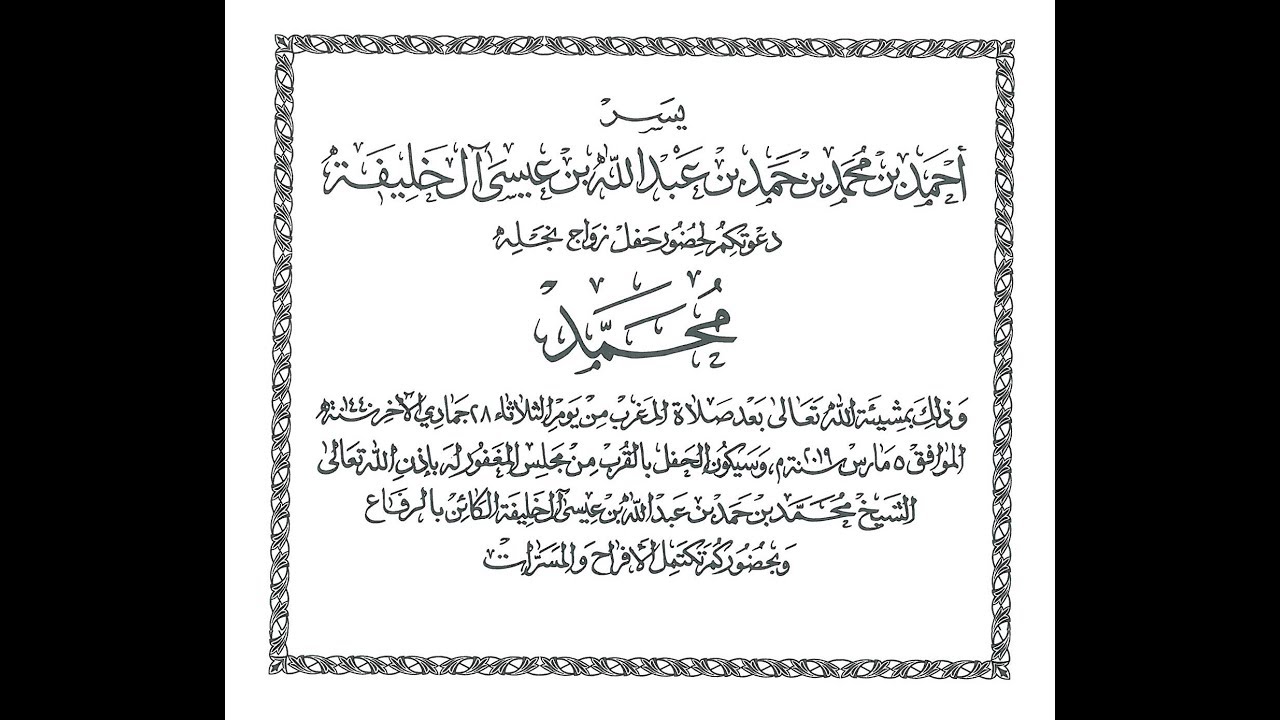 يسر
أحمد بن محمد بن حمد بن عبدالله بن عيسى آل خليفة
دعوتكم لحضور حفل زواج نجله
محمد
وذلك بمشيئة الله تعالى بعد صلاة المغرب من يوم الثلاثاء ٢٨ جمادي الآخر سنة ١٤٤٠هـ
الموافق ٥ مارس سنة ٢٠١٩م، وسيكون الحفل بالقرب من مجلس المغفور له بإذن الله تعالى
الشيخ محمد بن حمد بن عبدالله بن عيسى آل خليفة الكائن بالرفاع
وبحضوركم تكتمل الأفراح والمسرات